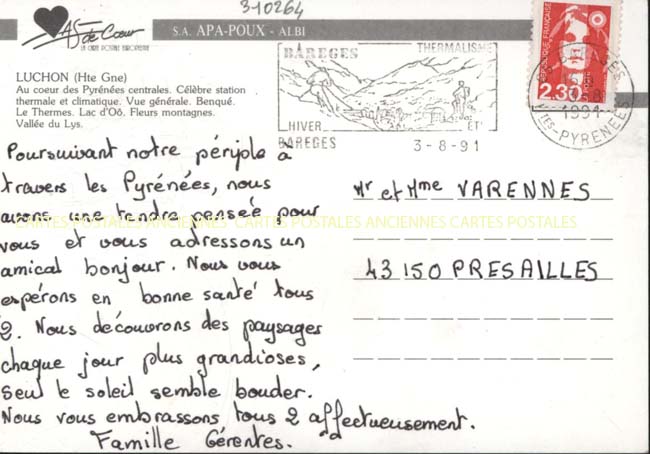 310264
AS de Cœur
LA CARTE POSTALE EUROPEENNE
S.A. APA-POUX - ALBI
LUCHON (Hte Gne)
Au coeur des Pyrénées centrales. Célèbre station
thermale et climatique. Vue générale. Benqué.
Le Thermes. Lac d'Oô. Fleurs montagnes.
Vallée du Lys.
BAREGES
THERMALISME
HIVER ET
BAREGES
3-8-91
REPUBLIQUE FRANÇAISE
2.30
1991
TES-PYRENEES
Poursuivant notre périple à
travers les Pyrénées, nous
avons une tendre pensée pour
vous et vous adressons un
amical bonjour. Nous vous
espérons en bonne santé tous
2. Nous découvrons des paysages
chaque jour plus grandioses,
seul le soleil semble bouder.
Nous vous embrassons tous 2 affectueusement.
Famille Gérentes.
Mr et Mme VARENNES
43 150 PRESAILLES
CARTES POSTALES ANCIENNES CARTES POSTALES ANCIENNES CARTES POSTALES